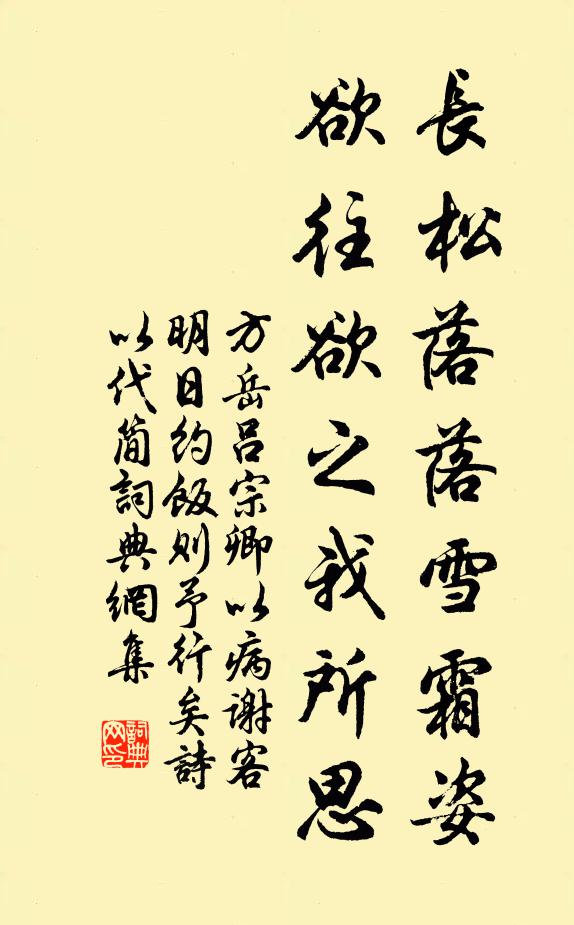 長松落落雪霜姿
欲往欲之我所思
方岳呂宗卿以病謝客
明日約飯則予行矣詩
以代簡詞典網集
詞典網印